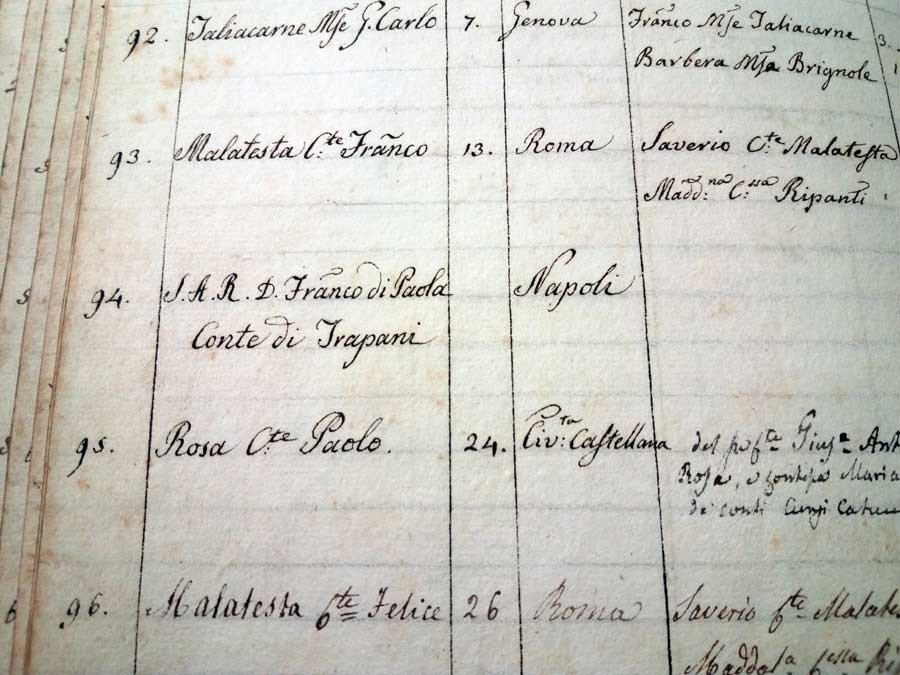 92. Taliacarne Mse G. Carlo 7. Genova Franco Mse Taliacarne 3.
Barbera Msa Brignole
93. Malatesta C.te Franco 13. Roma Saverio C.te Malatesta
Madd.na C.ssa Ripanti
94. S. A. R. D. Franco di Paola Napoli
Conte di Trapani
95. Rosa C.te Paolo. 24. Civ.ta Castellana del Gius.a Ant
Rosa, e Maria
de conti
96. Malatesta C.te Felice 26 Roma Saverio C.te Malate
Madd.a C.ssa Ri